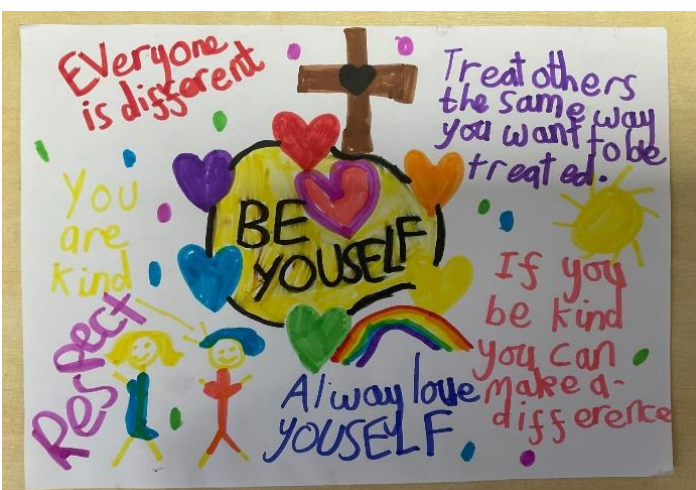 Everyone
is different
Treat others
the same way
you want to be
treated.
You
are
kind
BE
YOUSELF
If you
be kind
you can
make a
difference
Respect
Alway love
YOUSELF